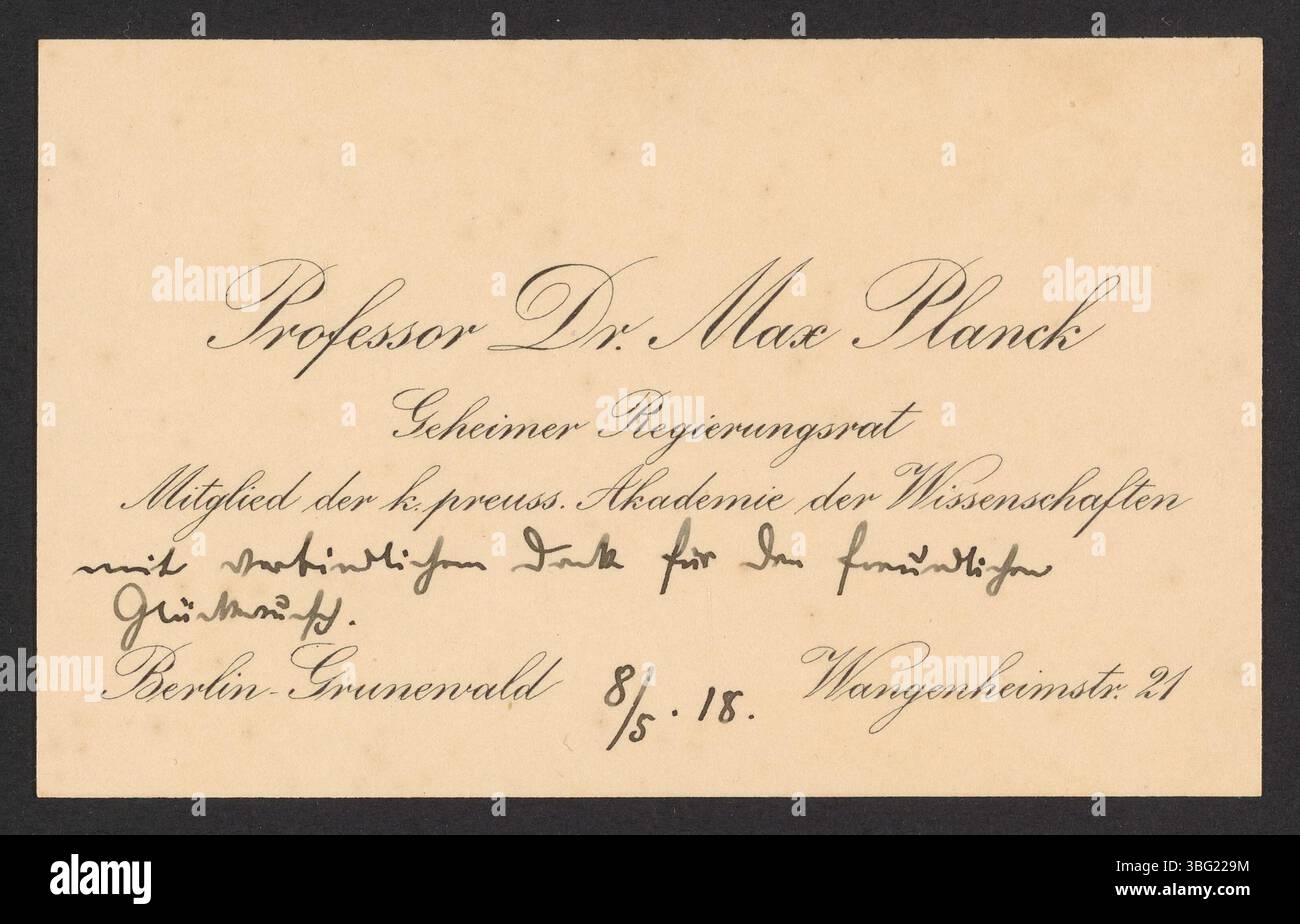 Professor Dr. Max Planck
Geheimer Regierungsrat
Mitglied der k. preuss. Akademie der Wissenschaften
mit verbindlichem Dank für den freundlichen
Glückwunsch.
Berlin-Grunewald 8/5. 18. Wangenheimstr. 21
alamy
Image ID: 3BG229M
www.alamy.com